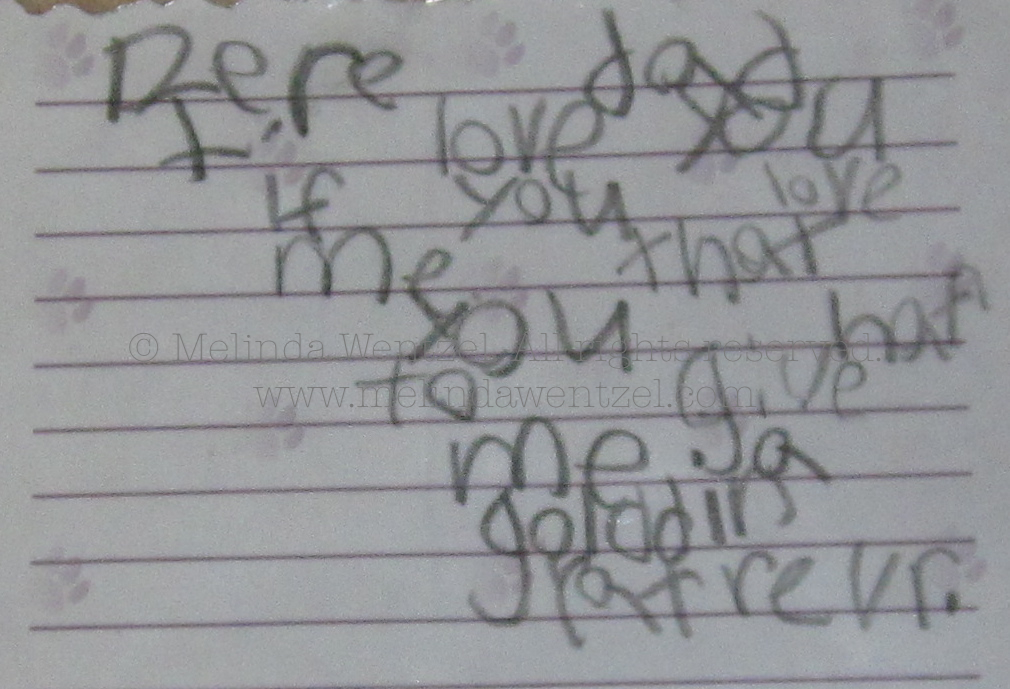 Dere dad
I love you
If you love
me that
you hat
to give
me a
goladin
ratrevr.
© Melinda Wentzel. All rights reserved.
www.melindawentzel.com